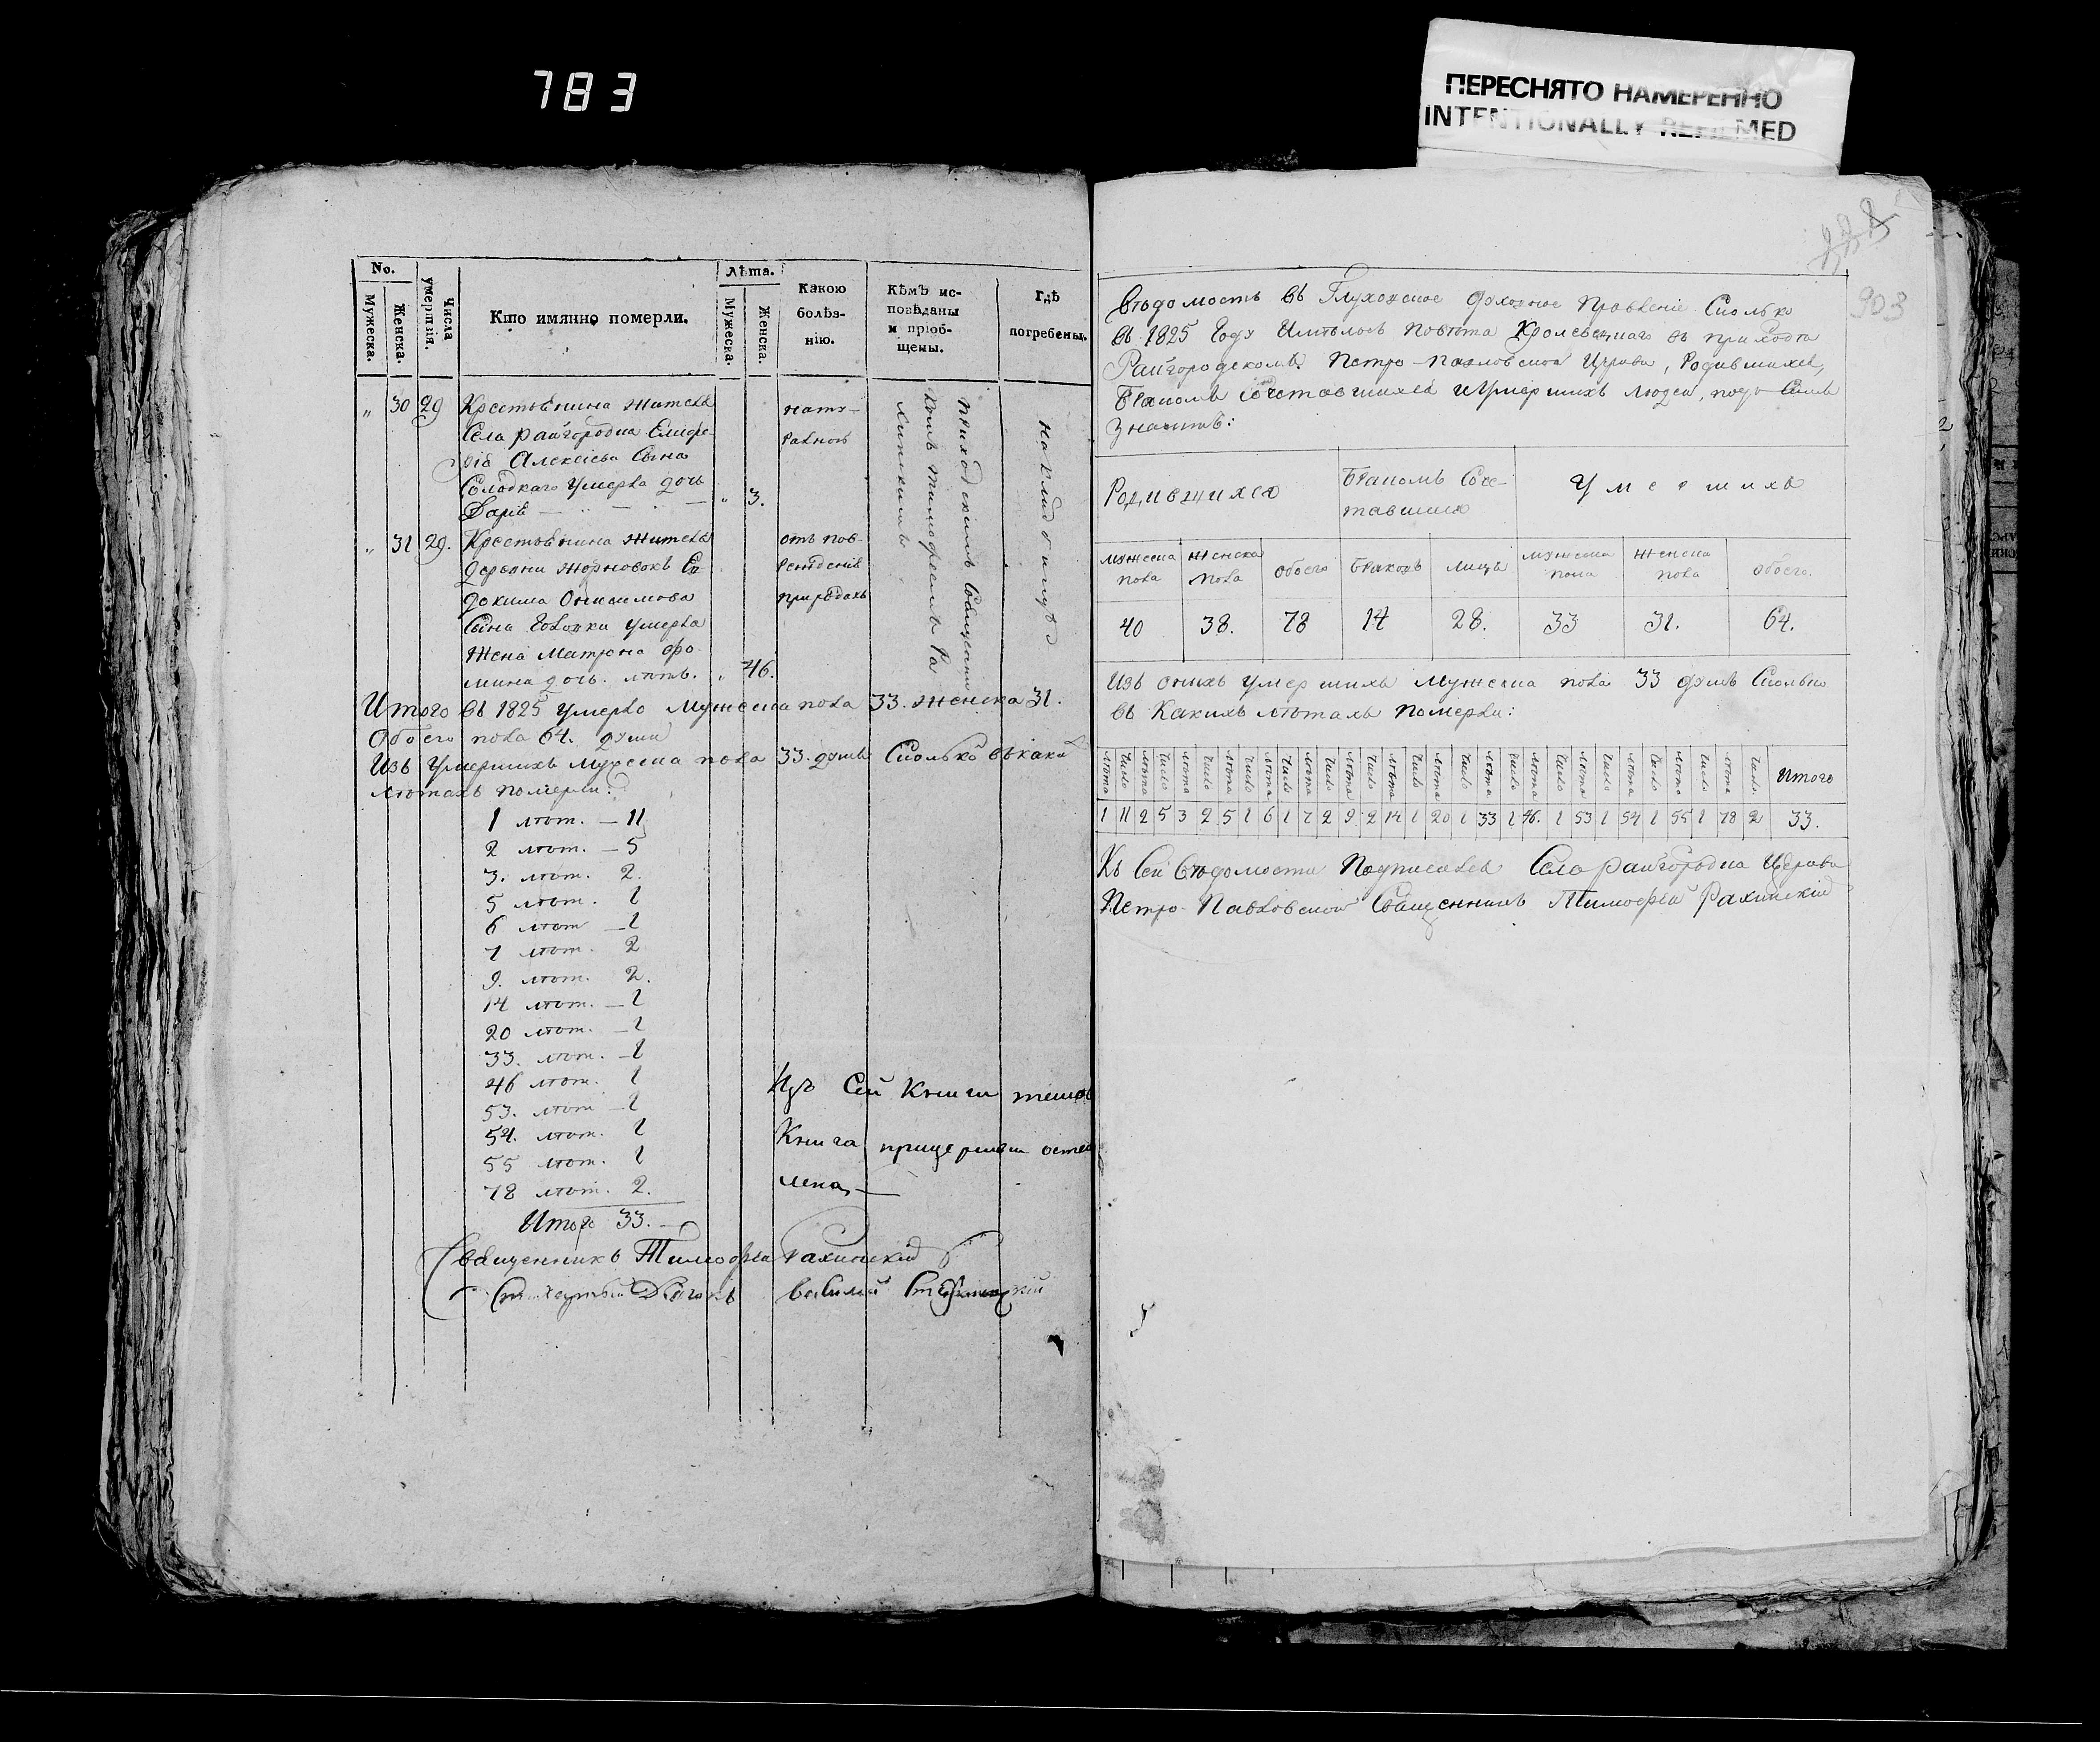 783
ПЕРЕСНЯТО НАМЕРЕННО
INTENTIONALLY REFILMED
No.
Мужеска.
Женска.
Числа умертвія.
Кто имянно померли.
Лѣта.
Мужеска.
Женска.
Какою болѣз-
нію.
Кѣмъ ис-
повѣданы
и пріоб-
щены.
Гдѣ
погребены.
„ 30 29 Крестьянина жителя
Села Райгородка Елифе-
рія Алексіева Сына
Солодкаго умерла дочь
Дарія „ 3.
нату-
ральною
„ 31 29. Крестьянина жителя
деревни Жорновокъ Ев-
докима Онисимова
Сына Головки умерла
Жена Матрона Фо-
мина дочь. лѣтъ. „ 46.
отъ пов-
режденія
природахъ
приходскимъ Священни-
комъ Тимофеемъ Ра
хинскимъ
на кладбищѣ
Итого въ 1825 умерло Мужеска пола 33. Женска 31.
Обоего пола 64. души
Изъ Умершихъ Мужеска пола 33. душъ Сколько въ какихъ
лѣтахъ померли:
1 лѣт. — 11
2 лѣт. — 5
3. лѣт. 2.
5 лѣт. 1
6 лѣт — 1
7 лѣт. 2
9. лѣт. 2.
14 лѣт. — 1
20 лѣт. — 1
33. лѣт. — 1
46 лѣт. 1
53. лѣт — 1
54. лѣт. 1
55 лѣт. 1
78 лѣт. 2.
Итого 33. —
Изъ Сей Книги
Книга прицеркви
лена, —
Священникъ Тимофей Рахинскій
Дьячокъ
903
Вѣдомость въ Глуховское Духовное Правленіе Сколько
въ 1825 Году Имѣлось Повѣта Кролевецкаго въ приходѣ
Райгородскомъ Петро-Павловской Церкви, Родившихся,
Бракомъ Сочетавшихся и Умершихъ людей, подъ Симъ
Значитъ:
Родившихся
Бракомъ Соче-
тавшихся
Умершихъ
мужеска пола
женска пола
обоего
браковъ
лицъ
мужеска пола
женска пола
обоего.
40 38. 78 14 28. 33 31. 64.
Изъ оныхъ умершихъ мужеска пола 33 душъ Сколько
въ Какихъ лѣтахъ Померли:
лѣта число лѣта число лѣта число лѣта число лѣта число лѣта число лѣта число лѣта число лѣта число лѣта число лѣта число лѣта число лѣта число лѣта число лѣта число. Итого
1 11 2 5 3 2 5 1 6 1 7 2 9 2 14 1 20 1 33 1 46. 1 53 1 54 1 55 1 78 2 33.
Къ Сей Вѣдомости Подписался Села Райгородка Церкви
Петро-Павловской Священникъ Тимофей Рахинскій